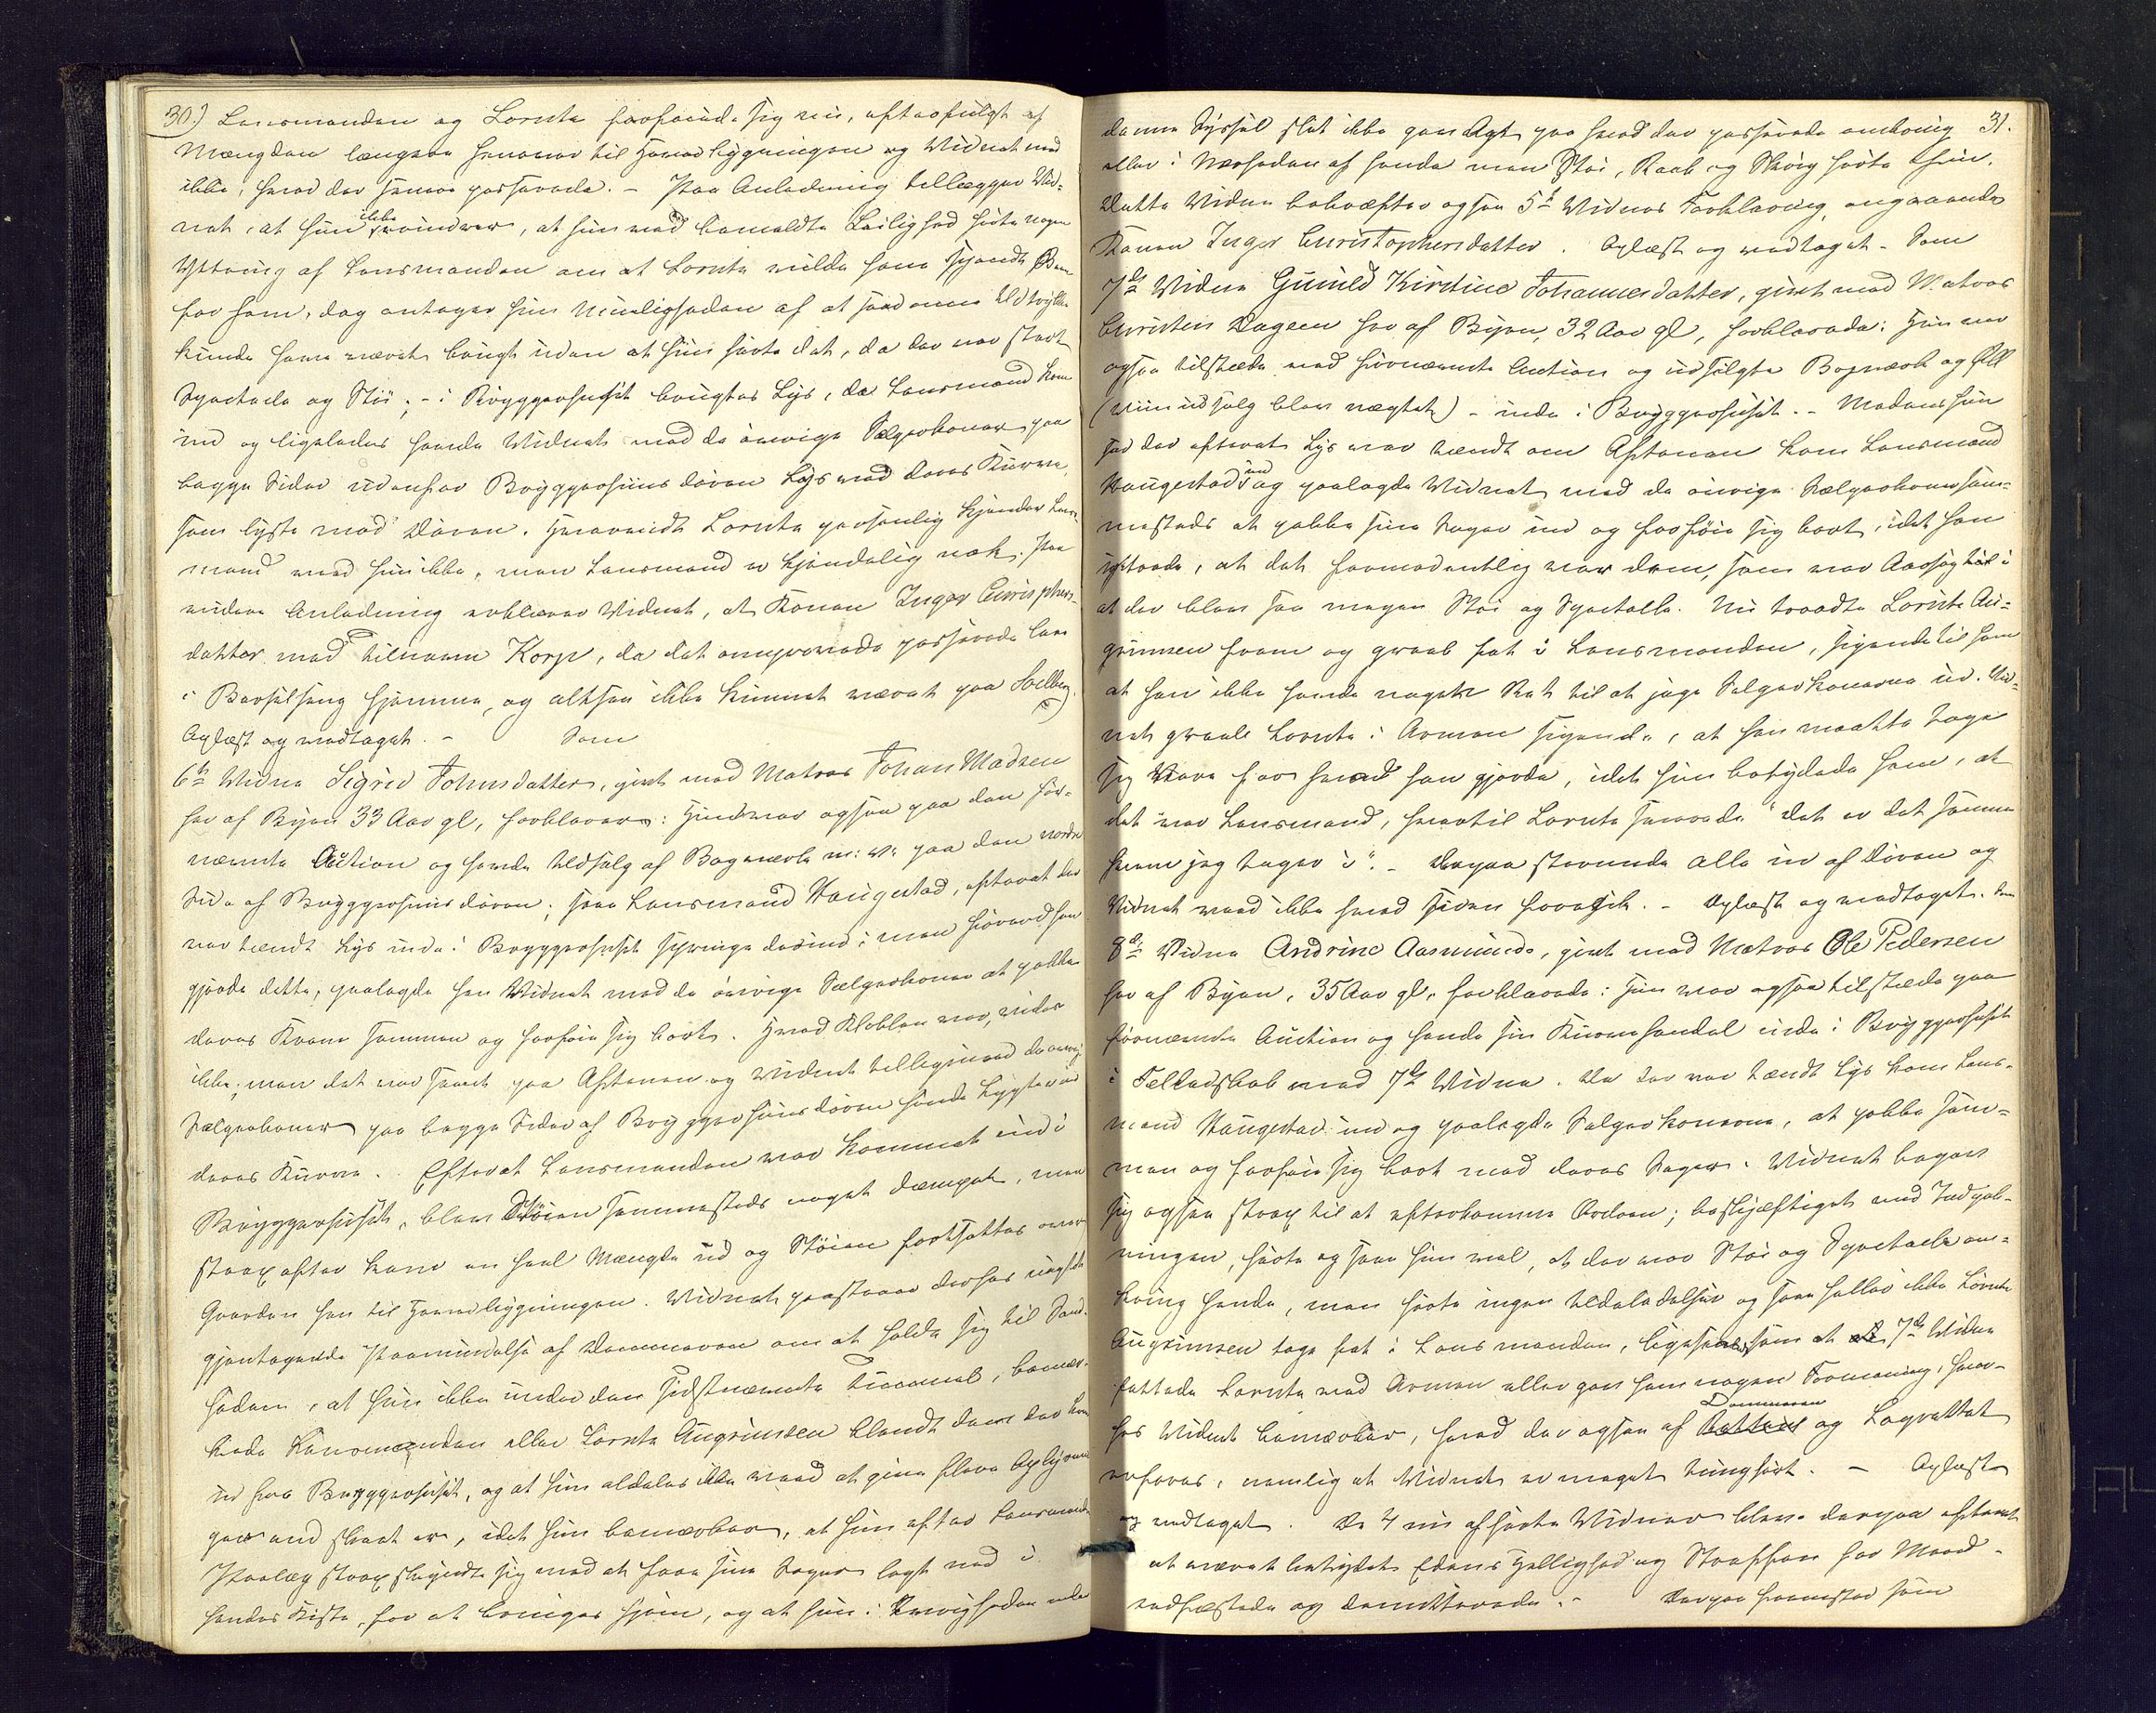 30.) Lensmanden og Lornts forføiede sig nu, efterfulgt af
Mængden længere henover til Hovedbygningen og Vidnet veed
ikke, hvad der senere passerede. – Paa Anledning tillægger Vid-
net, at hun ikke erindrer, at hun ved bemeldte Leilighed hørte nogen
Yttring af Lensmanden om at Lornts vilde have
for ham, dog antager hun Muligheden af at saadanne Udtrykke
kunde have været brugt uden at hun hørte det, da der var stort
Spectacle og Støi; – i Bryggerhuset brugtes Lys, da Lensmand kom
ind og ligeledes havde Vidnet med de øvrige Sælgerkoner paa
begge Sider udenfor Bryggerhuusdøren Lys ved deres Kurve,
som lyste mod Døren. Hvorvidt Lornts personlig kjender Lens-
mand veed hun ikke, men Lensmand er kjendelig nok. Paa
videre Anledning erklærer Vidnet, at Konen Inger Chrisphers-
datter med Tilnavn Korp, da det omprøvede passerede laae
i Barselseng hjemme, og altsaa ikke kunnet været paa Solberg.
Oplæst og vedtaget. – Som
6te Vidne Sigrid Johnsdatter, givt med Matros Johan Madsen
her af Byen 33 Aar gl, forklarer: Hun var ogsaa paa den før-
nævnte Auction og havde Udsalg af Bagværk m: v: paa den nordre
Side af Bryggerhuusdøren; saa Lensmand Haugestad, efterat der
var tændt Lys inde i Bryggerhuset springe derind; men førend han
gjorde dette, paalagde han Vidnet med de øvrige Sælgerkoner at pakke
deres Kram sammen og forføie sig bort. Hvad Klokken var, vides
ikke, men det var seent paa Aftenen og Vidnet tilligemed de øvrige
Sælgerkoner paa begge Sider af Bryggerhuusdøren havde Lygter ved
deres Kurve. Efterat Lensmanden var kommet ind i
Bryggerhuset, blev Støien sammesteds noget dæmpet, men
strax efter kom en heel Mængde ud og Støien fortsattes over
Gaarden hen til Hovedbygningen. Vidnet paastaaer derhos uagtet
gjentagende Paamindelse af Dommeren om at holde sig til Sand-
heden, at hun ikke under den sidstnævnte Tummel, bemær-
kede Lensmanden eller Lornts Augrimsen blandt dem der kom
ud fra Bryggerhuset, og at hun aldeles ikke veed at give flere Oplysnin-
ger end skeet er, idet hun bemærker, at hun efter Lensmandens
Paalæg strax skyndte sig med at faae sine Sager lagt ned i
hendes Kiste, for at bringes hjem, og at hun i Travigheden under
31.
denne Syssel slet ikke gav Agt paa hvad der passerede omkring
eller i Nærheden af hende men Støi, Raab og Skrig hørte hun.
Dette Vidne bekræfter ogsaa 5te Vidnes Forklaring angaaende
Konen Inger Christophersdatter. Oplæst og vedtaget. Som
7de Vidne Gunild Kirstine Johannesdatter, givt med Matros
Christen Aagesen her af Byen, 32 Aar gl, forklarede: Hun var
ogsaa tilstæde ved førnævnte Auction og udsolgte Bagværk og Øll
(Viinudsalg blev nægtet) – inde i Bryggerhuset. – Medens hun
sad der efterat Lys var tændt om Aftenen kom Lensmand
Haugestad ind og paalagde Vidnet med de øvrige Sælgerkoner sam-
mesteds at pakke sine Sager ind og forføie sig bort, idet han
yttrede, at det formodentlig var dem, som var Aarsag til i
at der blev saa megen Støi og Spectakle. Nu traadte Lornts Au-
grimsen frem og greeb fat i Lensmanden, sigende til ham
at han ikke havde nogen Ret til at jage Sælgerkonerne ud. Vid-
net greeb Lornts i Armen sigende, at han maatte tage
sig vare for hvad han gjorde, idet hun betydede ham, at
det var Lensmand, hvortil Lornts svarede "det er det samme
hvem jeg tager i". – Derpaa strømmede alle ud af Døren og
Vidnet veed ikke hvad siden foregik. – Oplæst og vedtaget. Som
8de Vidne Andrine Aasmunds, givt med Matros Ole Pedersen
her af Byen, 35 Aar gl. forklarede: Hun var ogsaa tilstæde paa
førnævnte Auction og havde sin Kurvehandel inde i Bryggerhuset
i Fælledskab med 7de Vidne. Da der var tændt Lys kom Lens-
mand Haugestad ind og paalagde Sælgerkonerne, at pakke sam-
men og forføie sig bort med deres Sager. Vidnet begav
sig ogsaa strax til at efterkomme Ordren; beskjæftiget med Indpak-
ningen, hørte og saa hun vel, at der var Støi og Spectacle om-
kring hende, men hørte ingen Udeladelser og saa heller ikke Lornts
Augrimsen tage fat i Lensmanden, ligesaalidt som at 7de Vidne
fattede Lornts ved Armen eller gav ham nogen Formaning, hvor-
hos Vidnet bemærker, hvad der ogsaa af Dommeren og Lagrettet
erfares, nemlig at Vidnet er meget tunghørt. – Oplæst
og vedtaget. De 4 nu afhørte Vidner bleve derpaa efterat
at været betydet Edens Hellighed og Straffen for Meened –
edfæstede og demitterede. – Derpaa fremstod som